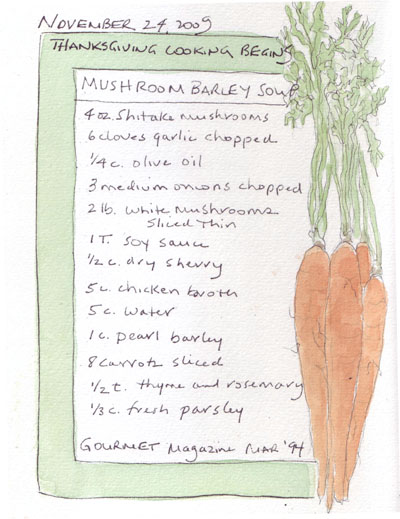 NOVEMBER 24, 2009
THANKSGIVING COOKING BEGINS
MUSHROOM BARLEY SOUP
4 oz. Shitake mushrooms
6 cloves garlic chopped
1/4 c. olive oil
3 medium onions chopped
2 lb. white mushrooms
sliced thin
1 T. soy sauce
1/2 c. dry sherry
5 c. chicken broth
5 c. water
1 c. pearl barley
8 carrots sliced
1/2 t. thyme and rosemary
1/3 c. fresh parsley
GOURMET Magazine MAR '94